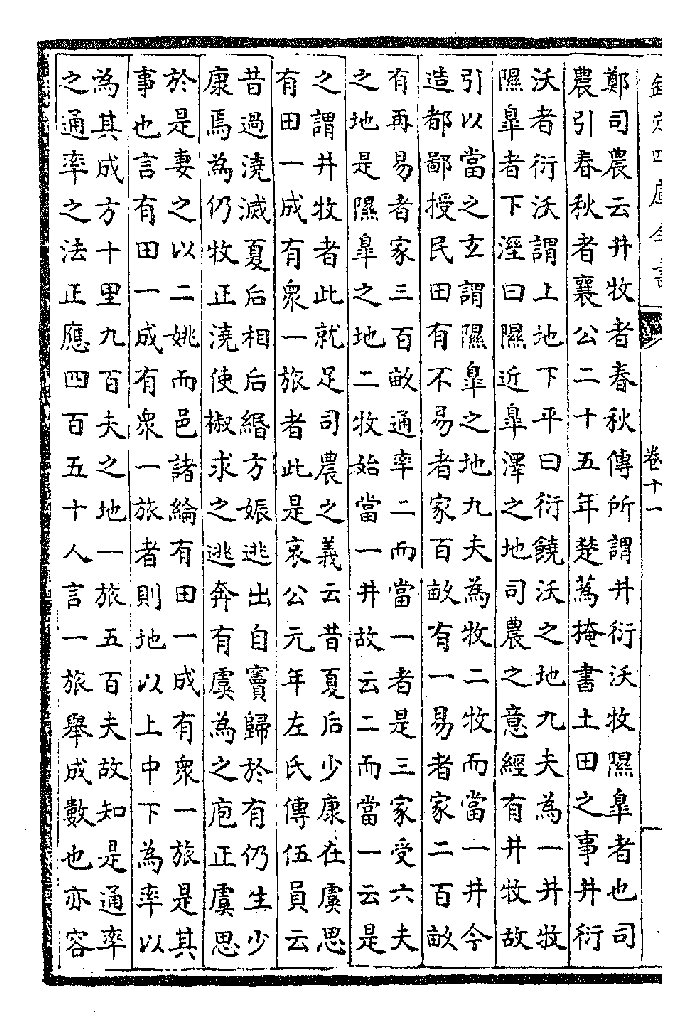 欽定四庫全書
卷十一
鄭司農云井牧者春秋傳所謂井衍沃牧隰臯者也司
農引春秋者襄公二十五年楚蒍掩書土田之事井衍
沃者衍沃謂上地下平曰衍饒沃之地九夫為一井牧
隰臯者下溼曰隰近臯澤之地司農之意經有井牧故
引以當之玄謂隰臯之地九夫為牧二牧而當一井今
造都鄙授民田有不易者家百畝有一易者家二百畝
有再易者家三百畝通率二而當一者是三家受六夫
之地是隰臯之地二牧始當一井故云二而當一云是
之謂井牧者此就足司農之義云昔夏后少康在虞思
有田一成有衆一旅者此是哀公元年左氏傳伍員云
昔過澆滅夏后相后緡方娠逃出自竇歸於有仍生少
康焉為仍牧正澆使椒求之逃奔有虞為之庖正虞思
於是妻之以二姚而邑諸綸有田一成有衆一旅是其
事也言有田一成有衆一旅者則地以上中下為率以
為其成方十里九百夫之地一旅五百夫故知是通率
之通率之法正應四百五十人言一旅舉成數也亦容